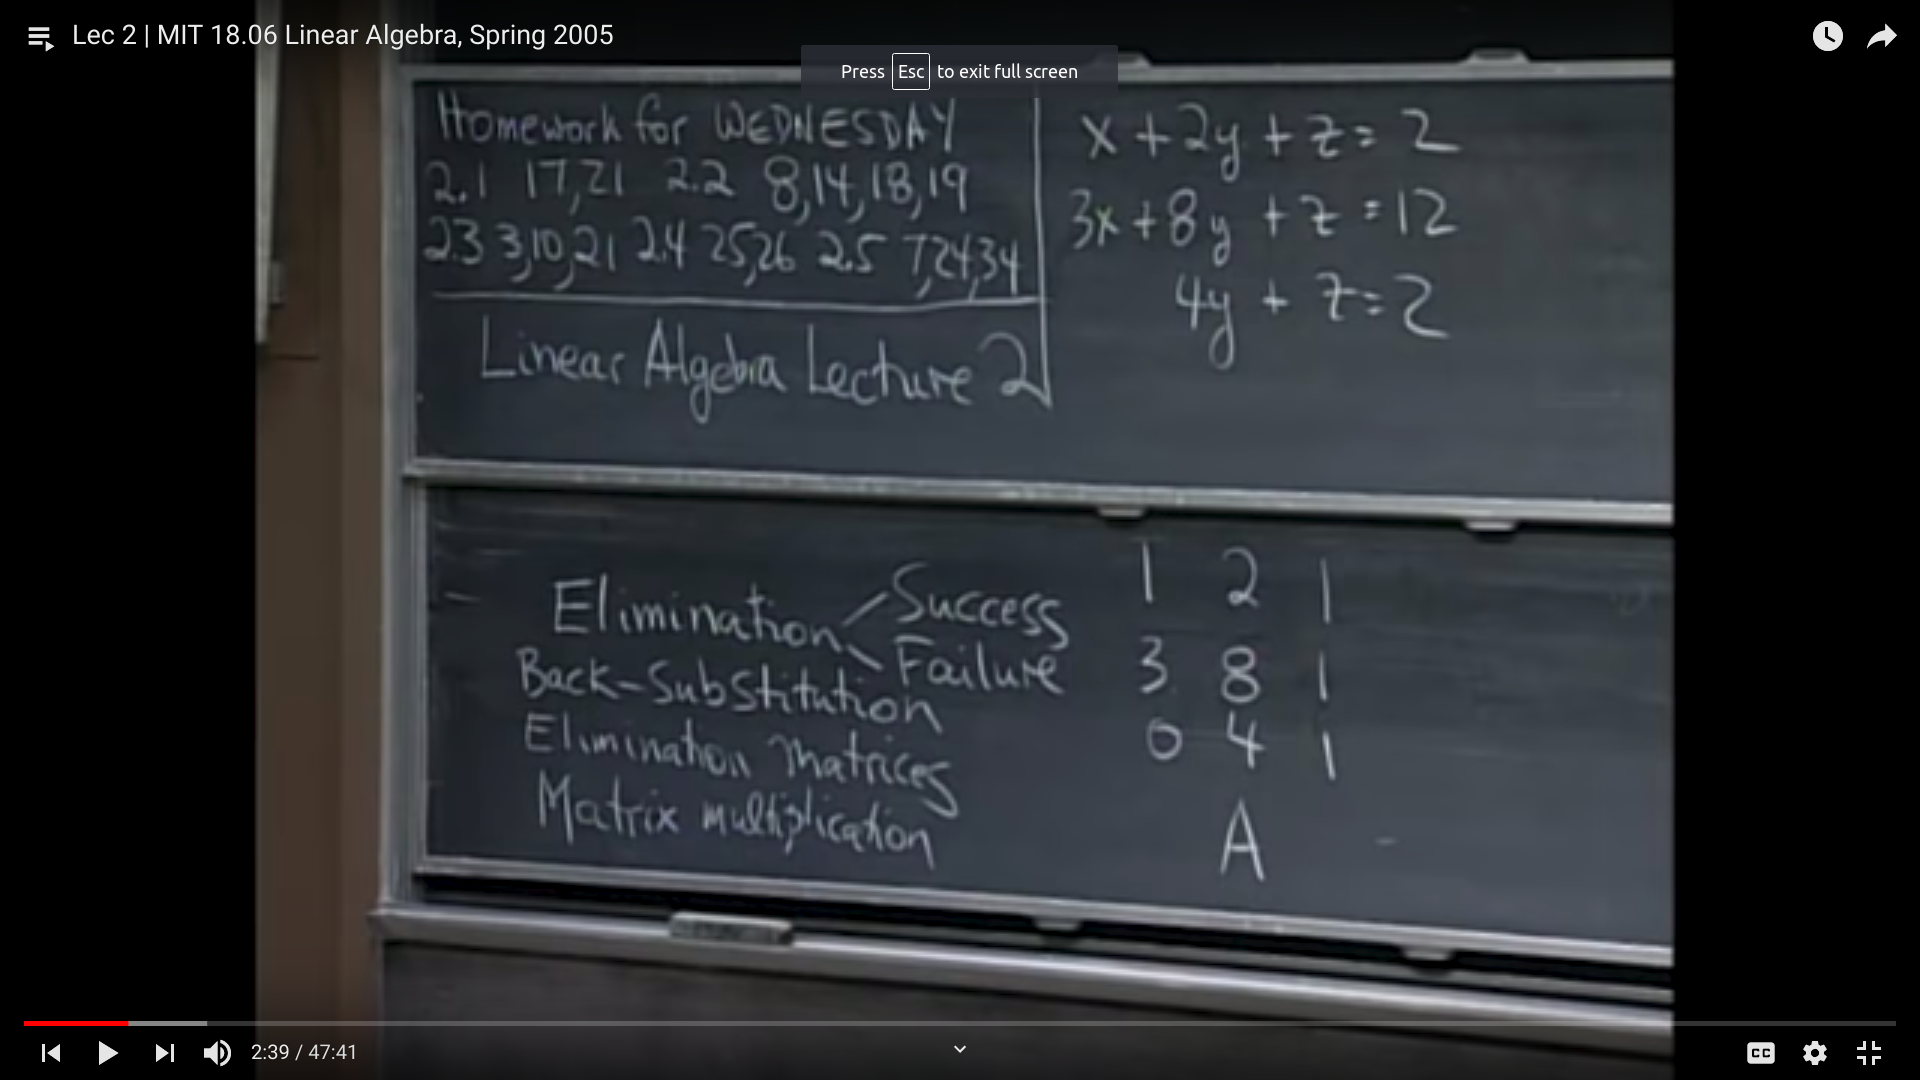 Lec 2 | MIT 18.06 Linear Algebra, Spring 2005
Press Esc to exit full screen
Homework for WEDNESDAY
2.1 17,21 2.2 8,14,18,19
2.3 3,10,21 2.4 25,26 2.5 7,24,34
Linear Algebra Lecture 2
x + 2y + z = 2
3x + 8y + z = 12
4y + z = 2
Elimination Success
Failure
Back-Substitution
Elimination Matrices
Matrix multiplication
1 2 1
3 8 1
0 4 1
A
2:39 / 47:41
CC